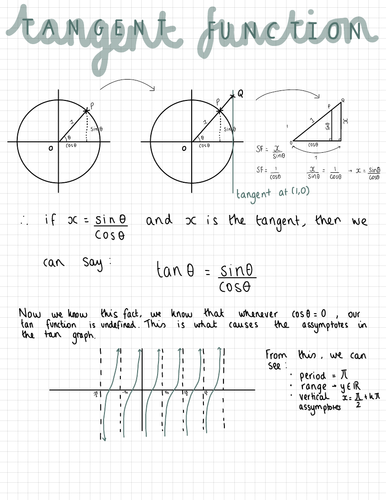 TANGENT FUNCTION
tangent function
P
1
sinθ
O
cosθ
Q
P
1
sinθ
O
cosθ
Q
P
x
O
cosθ
1
SF = x/sinθ
SF = 1/cosθ
x/sinθ = 1/cosθ → x = sinθ/cosθ
tangent at (1,0)
∴ if x = sinθ/cosθ and x is the tangent, then we
can say:
tanθ = sinθ/cosθ
Now we know this fact, we know that whenever cosθ=0, our
tan function is undefined. This is what causes the assymptotes in
the tan graph.
From this, we can
see:
• period = π
• range → y∈ℝ
• vertical x = π/2 + kπ
assymptotes